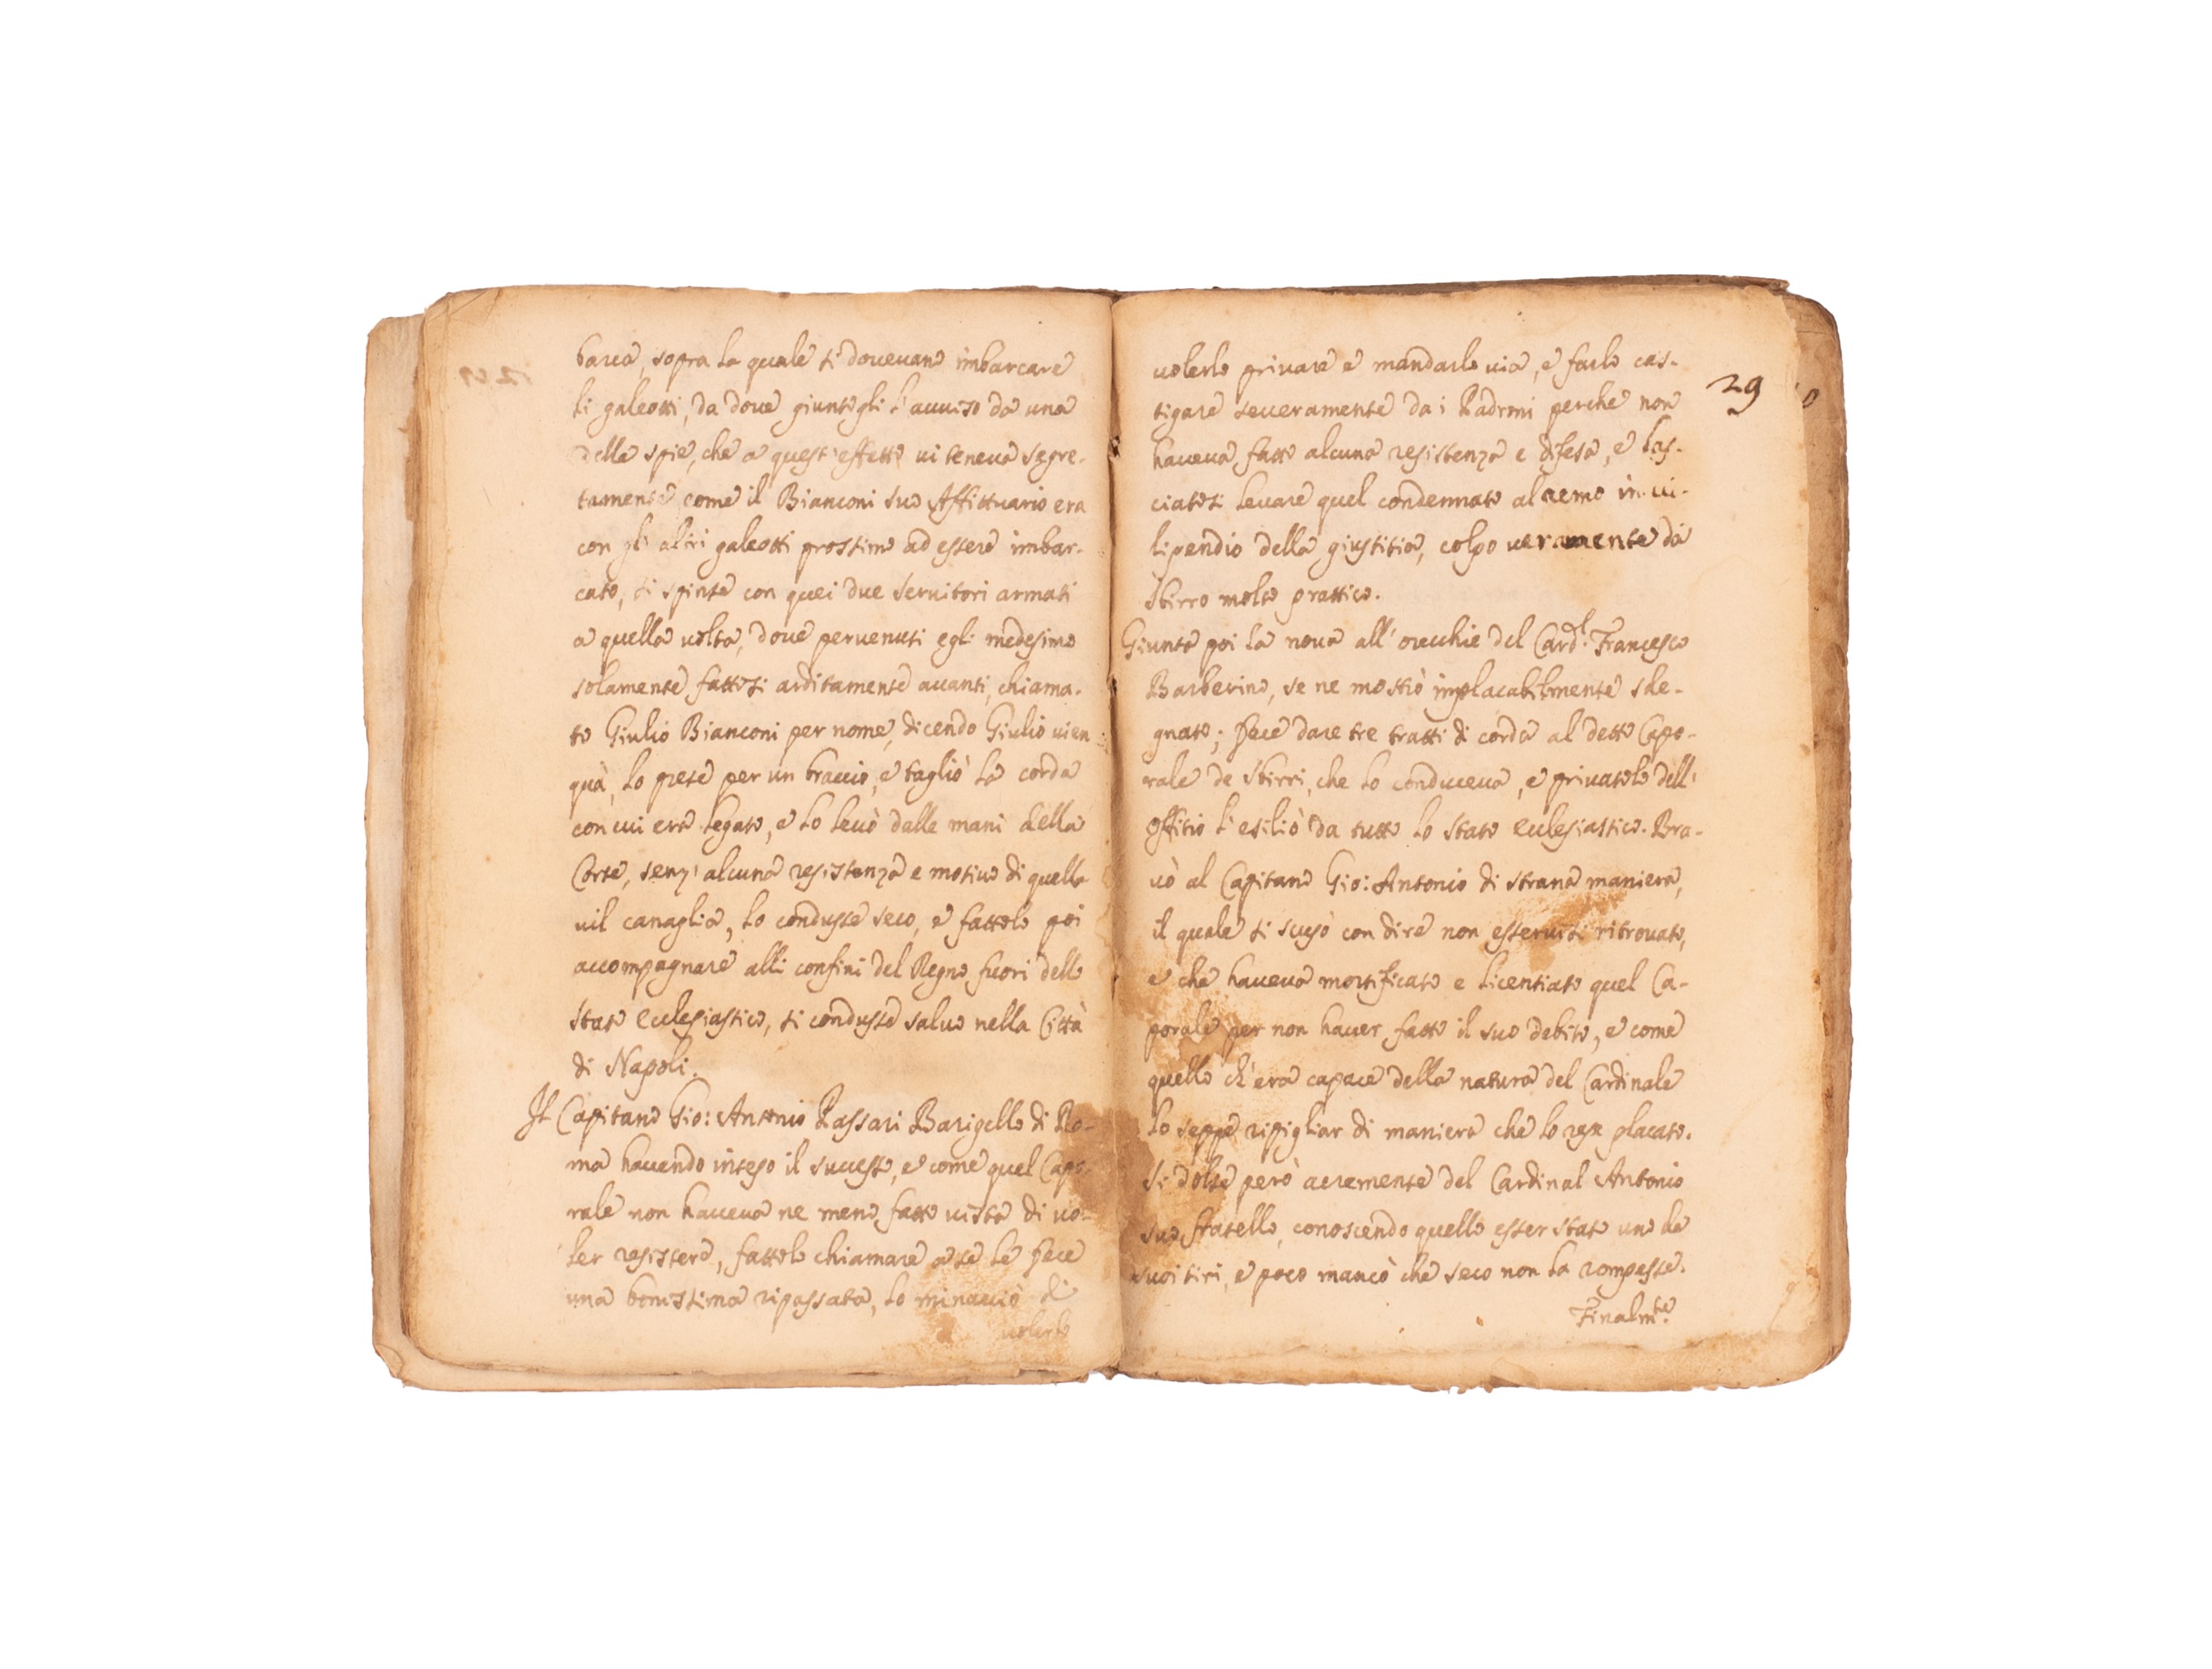 barca, sopra la quale si doueuano imbarcare
li galeotti, da doue giuntogli l'auuiso da una
delle spie, che a quest'effetto ui teneua segre-
tamente come il Bianconi suo Affittuario era
con gli altri galeotti prossimo ad essere imbar-
cato, si spinse con quei due seruitori armati
a quella uolta, doue peruenuti egli medesimo
solamente fattosi arditamente auanti, chiama-
to Giulio Bianconi per nome, dicendo Giulio uien
quà, lo prese per un braccio, e tagliò la corda
con cui era legato, e lo leuò dalle mani della
Corte, senz'alcuna resistenza e motiuo di quella
uil canaglia, lo condusse seco, e fattolo poi
accompagnare alli confini del Regno fuori dello
Stato Ecclesiastico, si condusse saluo nella Città
di Napoli.
Il Capitano Gio: Antonio Passari Barigello di Ro-
ma hauendo inteso il successo, e come quel Capo-
rale non haueua ne meno fatto uista di uo-
ler resistere, fattolo chiamare a se le fece
una bonissima ripassata, lo minacciò di
uolerlo
29
uolerlo priuare e mandarlo uia, e farlo cas-
tigare seueramente da i Padroni perche non
haueua fatto alcuna resistenza e difesa, e las-
ciatosi leuare quel condennato al remo in ui-
lipendio della giustitia, colpo ueramente da
Sbirro molto prattico.
Giunta poi la noua all'orecchie del Card.l Francesco
Barberino, se ne mostrò implacabilmente sde-
gnato; fece dare tre tratti di corda al detto Capo-
rale de Sbirri, che lo conduceua, e priuatolo dell'
offitio l'esiliò da tutto lo Stato Ecclesiastico. Bra-
uò al Capitano Gio: Antonio di strana maniera,
il quale si scusò con dire non esseruisi ritrouato,
e che haueua mortificato e licentiato quel Ca-
porale per non hauer fatto il suo debito, e come
quello ch'era capace della natura del Cardinale
lo seppe ripigliar di maniera che lo rese placato.
Si dolse però acremente del Cardinal Antonio
suo fratello, conoscendo quello esser stato uno de
suoi tiri, e poco mancò che seco non la rompesse.
Finalm.te